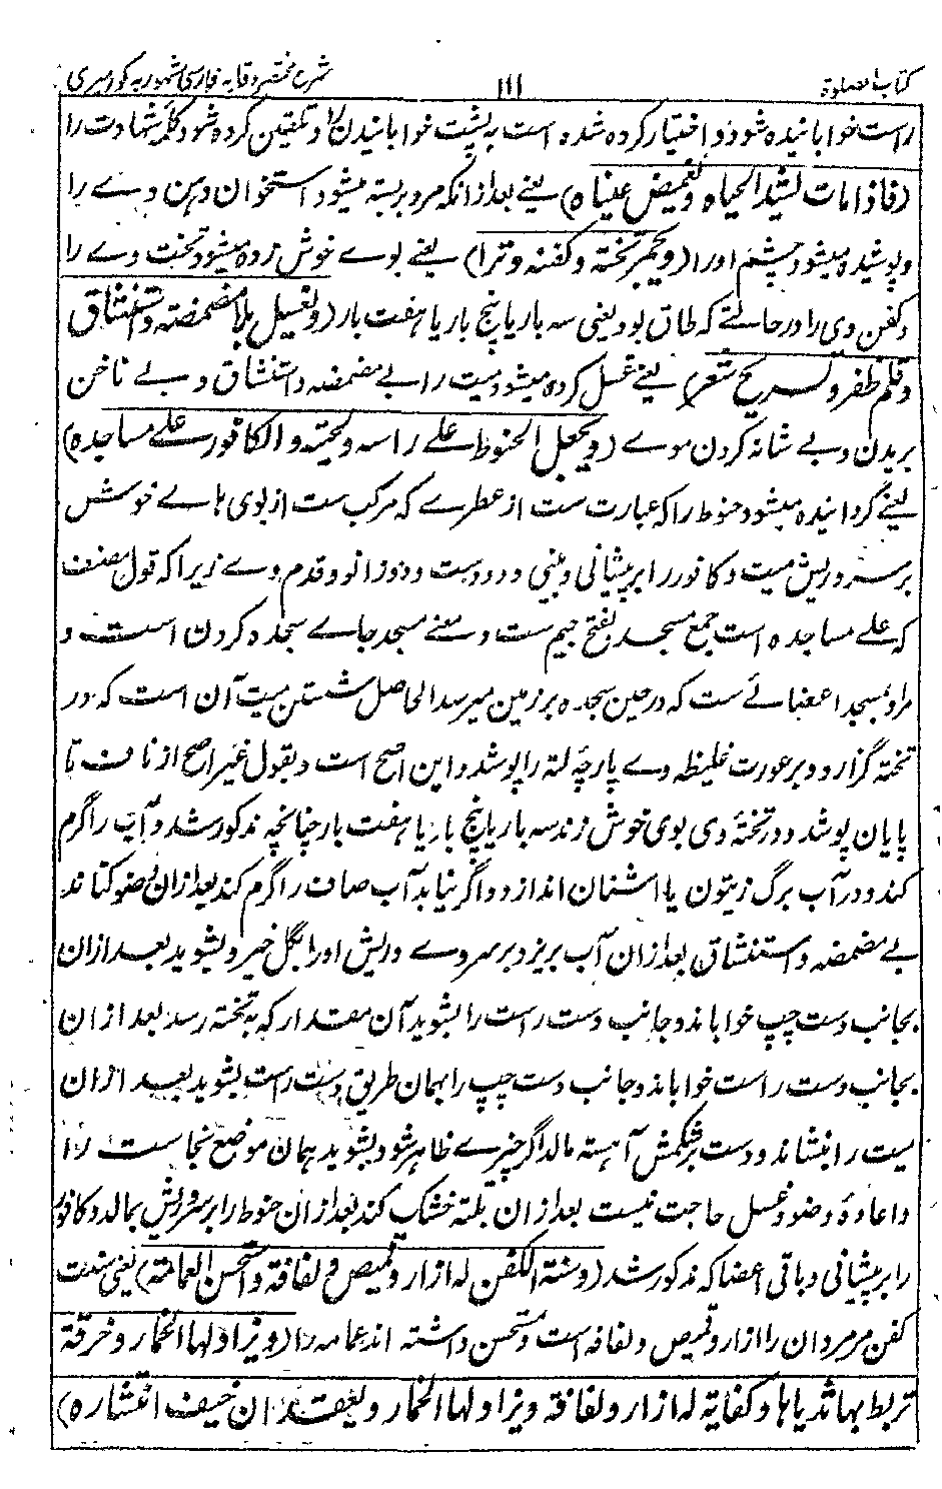 کتاب الصلوة ۱۱۱ شرح مختصر وقایه فارسی مشهور به کور میری
راست خوابانیده شود و اختیار کرده شده است به پشت خوابانیدن را و تلقین کرده شود کلمه شهادت را
(فاذا مات لشید الحیاه و تغمیض عیناه) یعنے بعد از انکه مرد بربسته میشود استخوان دهن وے را
و پوشیده میشود چشم اورا (و یجمر تخته و کفنه وترا) یعنے بوے خوش زده میشود تخت وے را
و کفن وی را در حالتے که طاق بود یعنی سه بار یا پنج بار یا هفت بار (و یغسل بلا مضمضته و استنشاق
و قلم ظفر و تسریح شعر) یعنے غسل کرده میشود میت را بے مضمضه و استنشاق و بے ناخن
بریدن و بے شانه کردن موے (و یجعل الحنوط علے راسه و لحیته و الکافور علے مساجده)
یعنے گردانیده میشود حنوط را که عبارت ست از عطرے که مرکب ست از بوی هاے خوش
بر سر و ریش میت و کافور را بر پیشانی و بینی و دو دست و دو زانو و قدم وے زیرا که قول مصنف
که علے مساجده است جمع مسجد بفتح جیم ست و معنے مسجد جاے سجده کردن است و
مراد بمسجد اعضائے ست که در حین سجده بر زمین میرسد الحاصل شستن میت آن است که در
تخته گزارد و بر عورت غلیظه وے پارچه لته را پوشد و این اصح است و بقول غیر اصح از ناف تا
پایان پوشد و در تختهٔ وی بوی خوش زند سه بار یا پنج بار یا هفت بار چنانچه مذکور شد و آب را گرم
کند و در آب برگ زیتون یا اشنان اندازد و اگر نیابد آب صاف را گرم کند بعد ازان وضو کناند
بے مضمضه و استنشاق بعد ازان آب بریزد بر سر وے و ریش اورا بگل خیر و بشوید بعد ازان
بجانب دست چپ خواباند و جانب دست راست را بشوید آن مقدار که به تخته رسد بعد ازان
بجانب دست راست خواباند و جانب دست چپ را بهمان طریق دست راست بشوید بعد ازان
میت را بنشاند و دست بر شکمش آهسته مالد اگر چیزے ظاهر شود بشوید همان موضع نجاست را
و اعادهٔ وضو و غسل حاجت نیست بعد ازان بلته خشک کند بعد ازان حنوط را بر سر و ریش بمالد و کافور
را بر پیشانی و باقی اعضا که مذکور شد (و سنة الکفن له ازار و قمیص و لفافة و استحسن العمامة) یعنی سنت
کفن مر مردان را ازار و قمیص و لفافه است و مستحسن داشته اند عمامه را (و یزاد لها الخمار و خرقة
تربط بها ثدیاها و کفایة له ازار و لفافة و یزاد لها الخمار و یعقد ان خیف انتشاره)